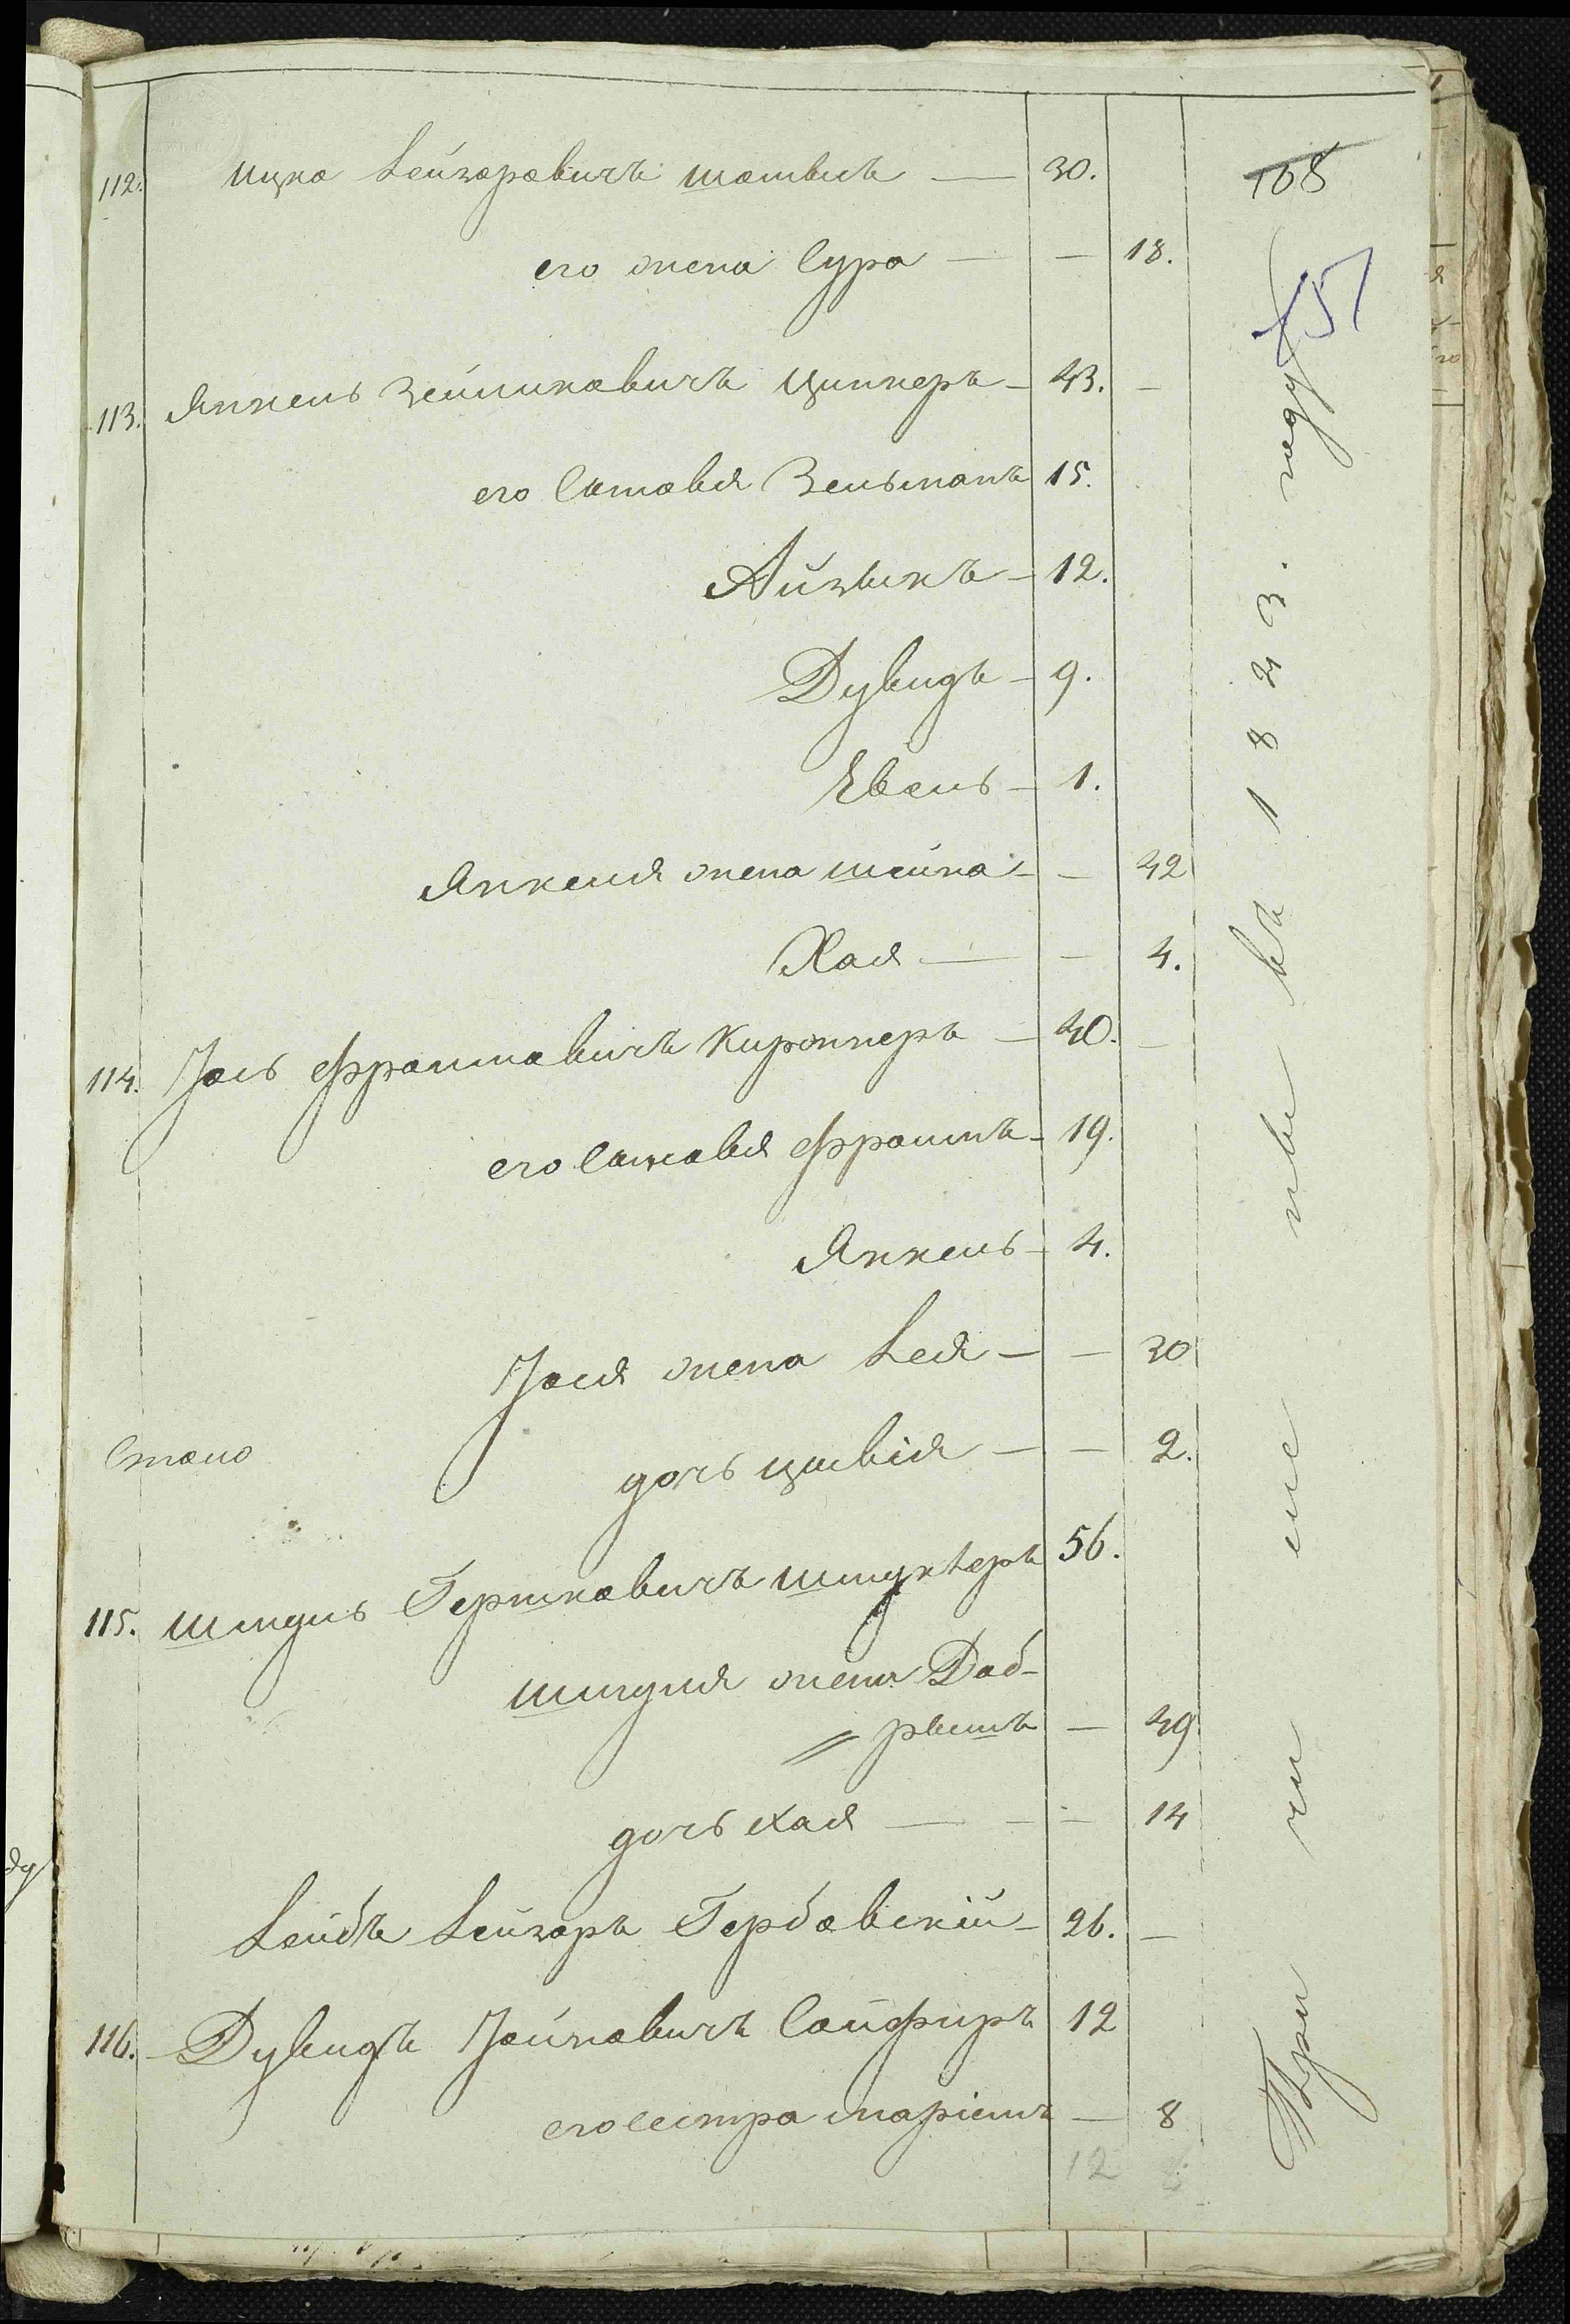 108
151
112. Ицко Лейзоровичъ Шотвелъ — 30.
его жена Сура — — 18.
113. Янкель Зейликовичъ Циннеръ — 43. —
его Сыновья Зельманъ 15.
Айзыкъ — 12.
Дувидъ — 9.
Евель — 1.
Янкеля жена Шейна — — 42
Хая — — 4.
114. Іоль Фроимовичъ Киржнеръ — 40. —
его Сыновья Фроимъ — 19.
Янкель — 4.
Іоля жена Лея — — 30
дочь Цывія — — 2.
115. Шмуль Гершковичъ Штукѣеръ 56.
Шмуля жена Доб-
= рышъ — 49
дочь Хая — — — 14
Лейбъ Лейзоръ Гербовскій — 26. —
116. Дувидъ Іойновичъ Сапфиръ 12
его сестра Маріемъ — 8
12 8
При чи сле ны въ 1823. году